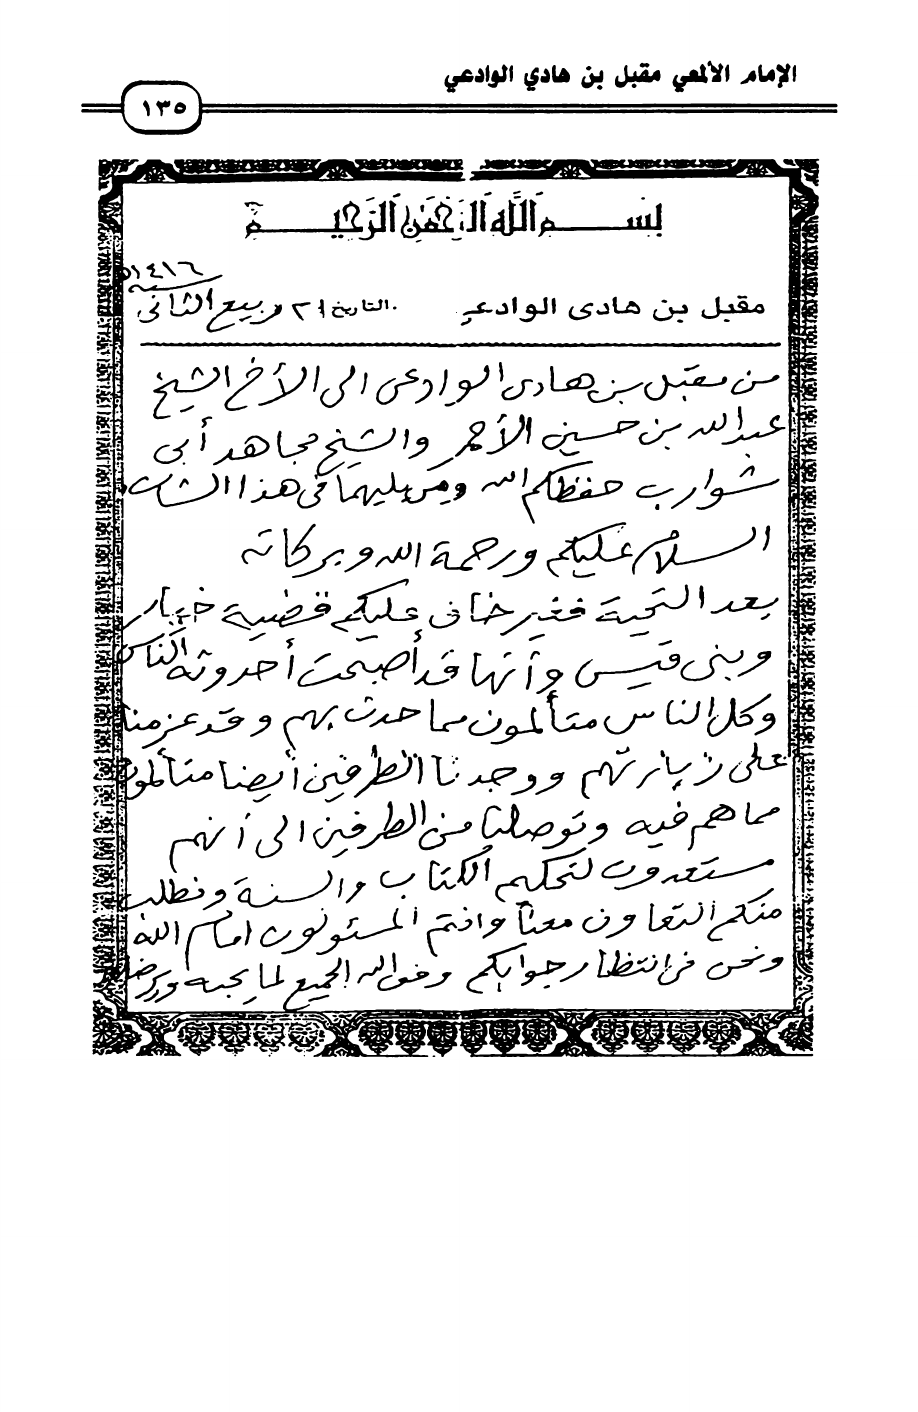 الإمام الألمعي مقبل بن هادي الوادعي
١٣٥
بسم الله الرحمن الرحيم
مقبل بن هادى الوادعي التاريخ ٢١ ربيع الثانى سنة ١٤١٦ه
من مقبل بن هادى الوادعى الى الأخ الشيخ
عبدالله بن حسين الأحمر والشيخ مجاهد أبى
شوارب حفظكم الله ومن يليهما فى هذا الشأن
السلام عليكم ورحمة الله وبركاته
بعد التحية فغير خافى عليكم قضية خيار
وبنى قيس وأنها قد أصبحت أحدوثة الناس
وكل الناس متألمون مما حدث بهم وقد عزمنا
على زيارتهم ووجدنا الطرفين أيضا متألمون
مما هم فيه وتوصلنا من الطرفين الى أنهم
مستعدون لتحكيم الكتاب والسنة ونطلب
منكم التعاون معنا وانتم المسئولون امام الله
ونحن فى انتظار جوابكم وفق الله الجميع لما يحبه ويرضاه